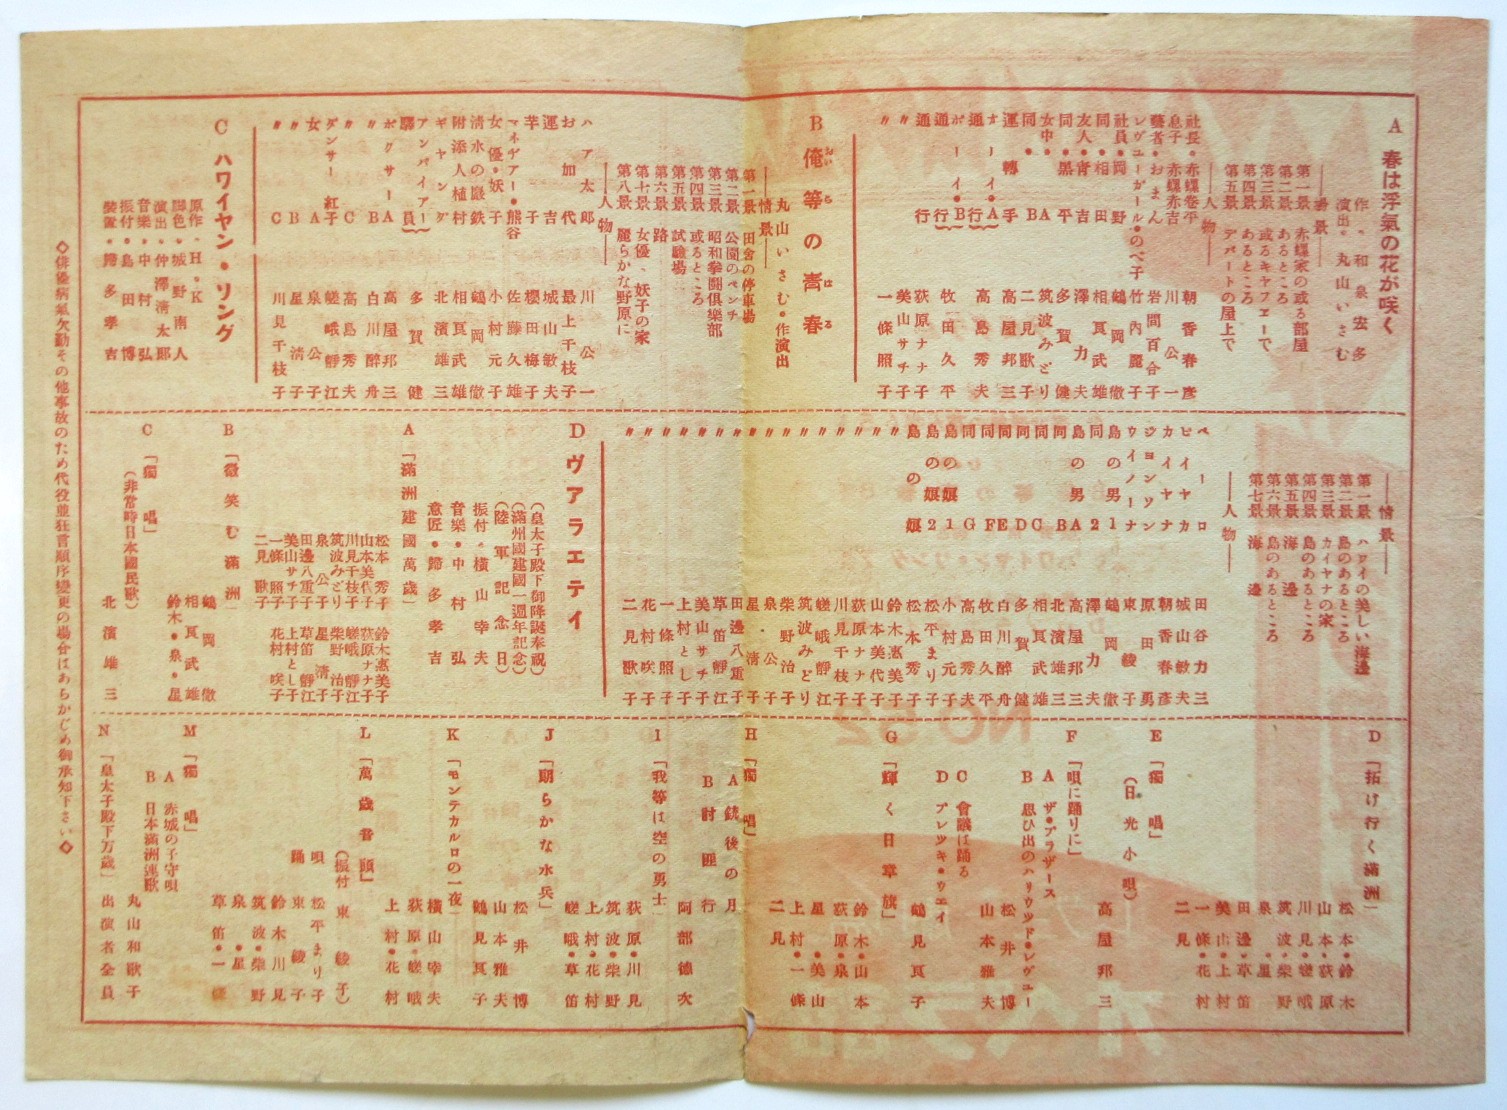 A 春は浮氣の花が咲く
作・和泉宏多
演出・丸山いさむ
――情景――
第一景 赤螺家の或る部屋
第二景 あるところ
第三景 或るキヤフエーで
第四景 あるところ
第五景 デパートの屋上で
――人物――
社長・赤螺卷平 朝香春彦
息子・赤螺赤吉 川公一
藝者・おまん 岩間百合子
レヴユーガール・のべ子 竹内麗子
社員・岡野 鶴岡徹
同・相田 相良武雄
友人・青吉 澤力夫
同・黒平 多賀健
女中・A 筑波みどり
同・B 二見歌子
運轉手 高屋邦三
ボーイ・A 通行 高島秀夫
ボーイ・B 通行 牧田久平
通行 荻原ナナ子
〃 美山サチ子
〃 一條照子
B 俺等の青春
おいらのはる
丸山いさむ・作演出
――情景――
第一景 田舎の停車場
第二景 公園のベンチ
第三景 昭和拳鬪倶樂部
第四景 或るところ
第五景 試驗場
第六景 路
第七景 女優、妖子の家
第八景 麗らかな野原に
――人物――
ハア太郎 川公一
お加代 最上千枝子
運吉 城山敏夫
芋子 櫻田梅子
マネヂアー・熊谷 佐藤久雄
女優・妖子 小村元子
清水の巖鉄 鶴岡徹
附添人植村 相良武雄
ギヤング 北濱雄三
アンパイアー 驛員 多賀健
ボクサーA 高屋邦三
〃B 白川醉舟
〃C 高島秀夫
ダンサー紅子 嵯峨靜江
女A 泉公子
〃B 星清子
〃C 川見千枝子
C ハワイヤン・リング
原作・H・K
脚色・城野南人
演出・仲澤清太郎
音樂・中村弘
振付・島田博
裝置・蹄多孝吉
――情景――
第一景 ハワイの美しい海邊
第二景 島のあるところ
第三景 カイヤナの家
第四景 島のあるところ
第五景 海邊
第六景 島のあるところ
第七景 海邊
――人物――
ペーロ 田谷力三
ヒイヤカ 城山敏夫
カイヤナ 朝香春彦
ジヨンワン 原田勇
ウイノーナ 東綾子
島の男1 鶴岡徹
同2 澤力夫
島の男A 高屋邦三
同B 北濱雄三
同C 相良武雄
同D 多賀健
同E 白川醉舟
同F 牧田久平
同G 高島秀夫
島の娘1 小村元子
島の娘2 松平まり子
島の娘 松本秀子
〃 鈴木惠美子
〃 山本美代子
〃 荻原ナナ子
〃 川見千枝子
〃 嵯峨靜江
〃 筑波みどり
〃 柴野治子
〃 泉公子
〃 星清子
〃 田邊八重子
〃 草笛靜江
〃 美山サチ子
〃 上村とし子
〃 一條照子
〃 花村咲子
〃 二見歌子
D ヴアラエテイ
(皇太子殿下御降誕奉祝)
(滿州國建國一週年記念)
(陸軍記念日)
振付・横山幸夫
音樂・中村弘
意匠・蹄多孝吉
A 「滿洲建國萬歳」
松本秀子 鈴木惠美子
山本美代子 荻原ナナ子
川見千枝子 嵯峨靜江
筑波みどり 柴野治子
泉公子 星清子
田邊八重子 草笛靜江
美山サチ子 上村とし子
一條照子 花村咲子
二見歌子
B 「微笑む滿洲」
鶴岡徹
相良武雄
鈴木・泉・星
C 「獨唱」
(非常時日本國民歌)
北濱雄三
D 「拓け行く滿洲」
松本・鈴木
山本・荻原
川見・嵯峨
筑波・柴野
泉・星
田邊・草笛
美山・上村
一條・花村
二見
E 「獨唱」
(日光小唄)
高屋邦三
F 「唄に踊りに」
A ザ・ブラザース
B 思ひ出のハリウッド・レヴュー
松井博
山本雅夫
C 會議は踊る
D プレツキ・ウエイ
鶴見良子
G 「輝く日章旗」
鈴木・山本
荻原・泉
星・美山
上村・一條
二見
H 「獨唱」
A 銃後の月
B 討匪行
阿部徳次
I 「我等は空の勇士」
荻原・川見
筑波・柴野
上村・花村
嵯峨・草笛
J 「朗らかな水兵」
松井博
山本雅夫
鶴見良子
K 「モンテカルロの一夜」
横山幸夫
荻原・嵯峨
上村・花村
L 「萬歳音頭」
(振付 東綾子)
唄 松平まり子
踊 東綾子
鈴木・川見
筑波・柴野
泉・星
草笛・一條
M 「獨唱」
A 赤城の子守唄
B 日本滿洲連歌
丸山和歌子
N 「皇太子殿下万歳」
出演者全員
◇俳優病氣欠勤その他事故のため代役並狂言順序變更の場合はあらかじめ御承知下さい◇